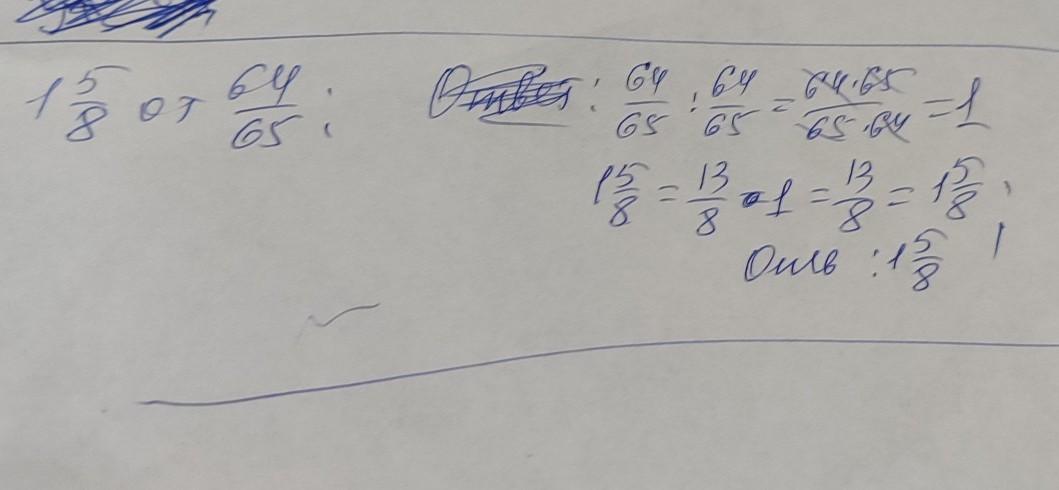 1 5/8 от 64/65; : 64/65 : 64/65 = 64·65/65·64 = 1
1 5/8 = 13/8 · 1 = 13/8 = 1 5/8 ;
Отв : 1 5/8